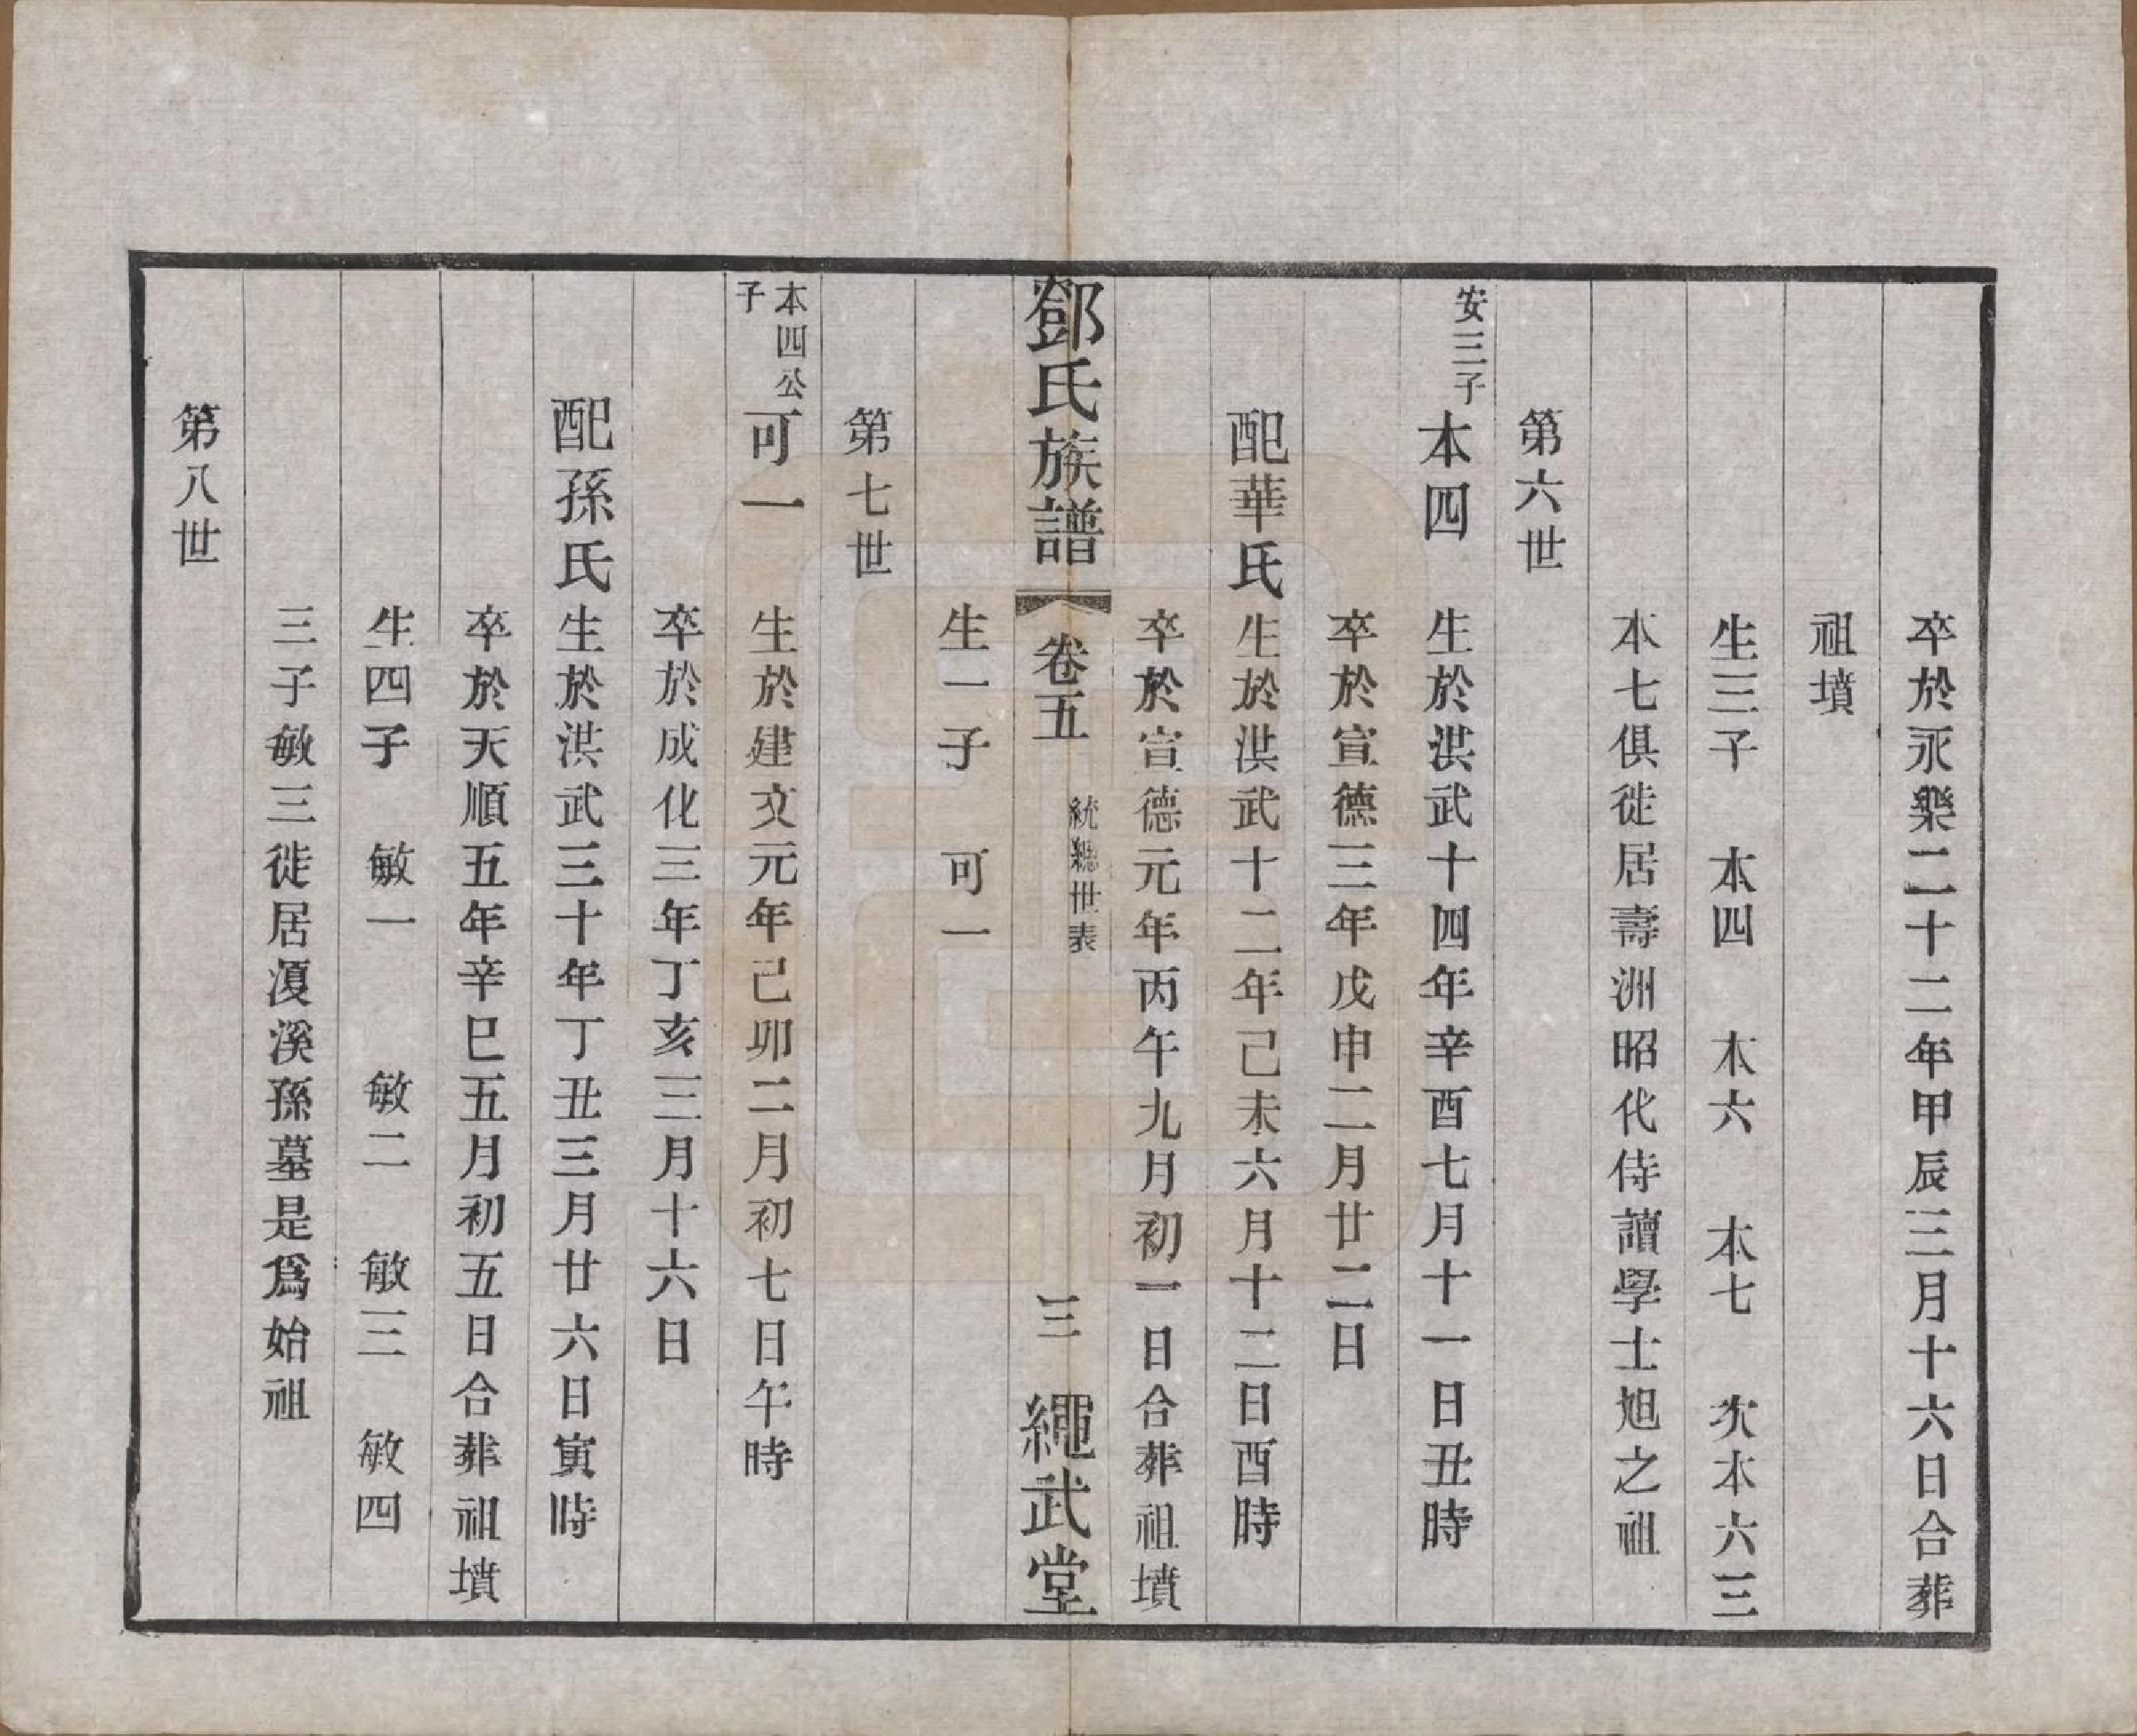 卒於永樂二十二年甲辰三月十六日合葬
祖墳
生三子　本四　本六　本七　次本六三
本七俱徙居壽洲昭代侍讀學士旭之祖
第六世
安三子　本四　生於洪武十四年辛酉七月十一日丑時
卒於宣德三年戊申二月廿二日
配華氏　生於洪武十二年己未六月十二日酉時
卒於宣德元年丙午九月初一日合葬祖墳
鄧氏族譜　卷五　統總世表　三　繩武堂
生一子　可一
第七世
本四公子　可一　生於建文元年己卯二月初七日午時
卒於成化三年丁亥三月十六日
配孫氏　生於洪武三十年丁丑三月廿六日寅時
卒於天順五年辛巳五月初五日合葬祖墳
生四子　敏一　敏二　敏三　敏四
三子敏三徙居溪孫墓是爲始祖
第八世